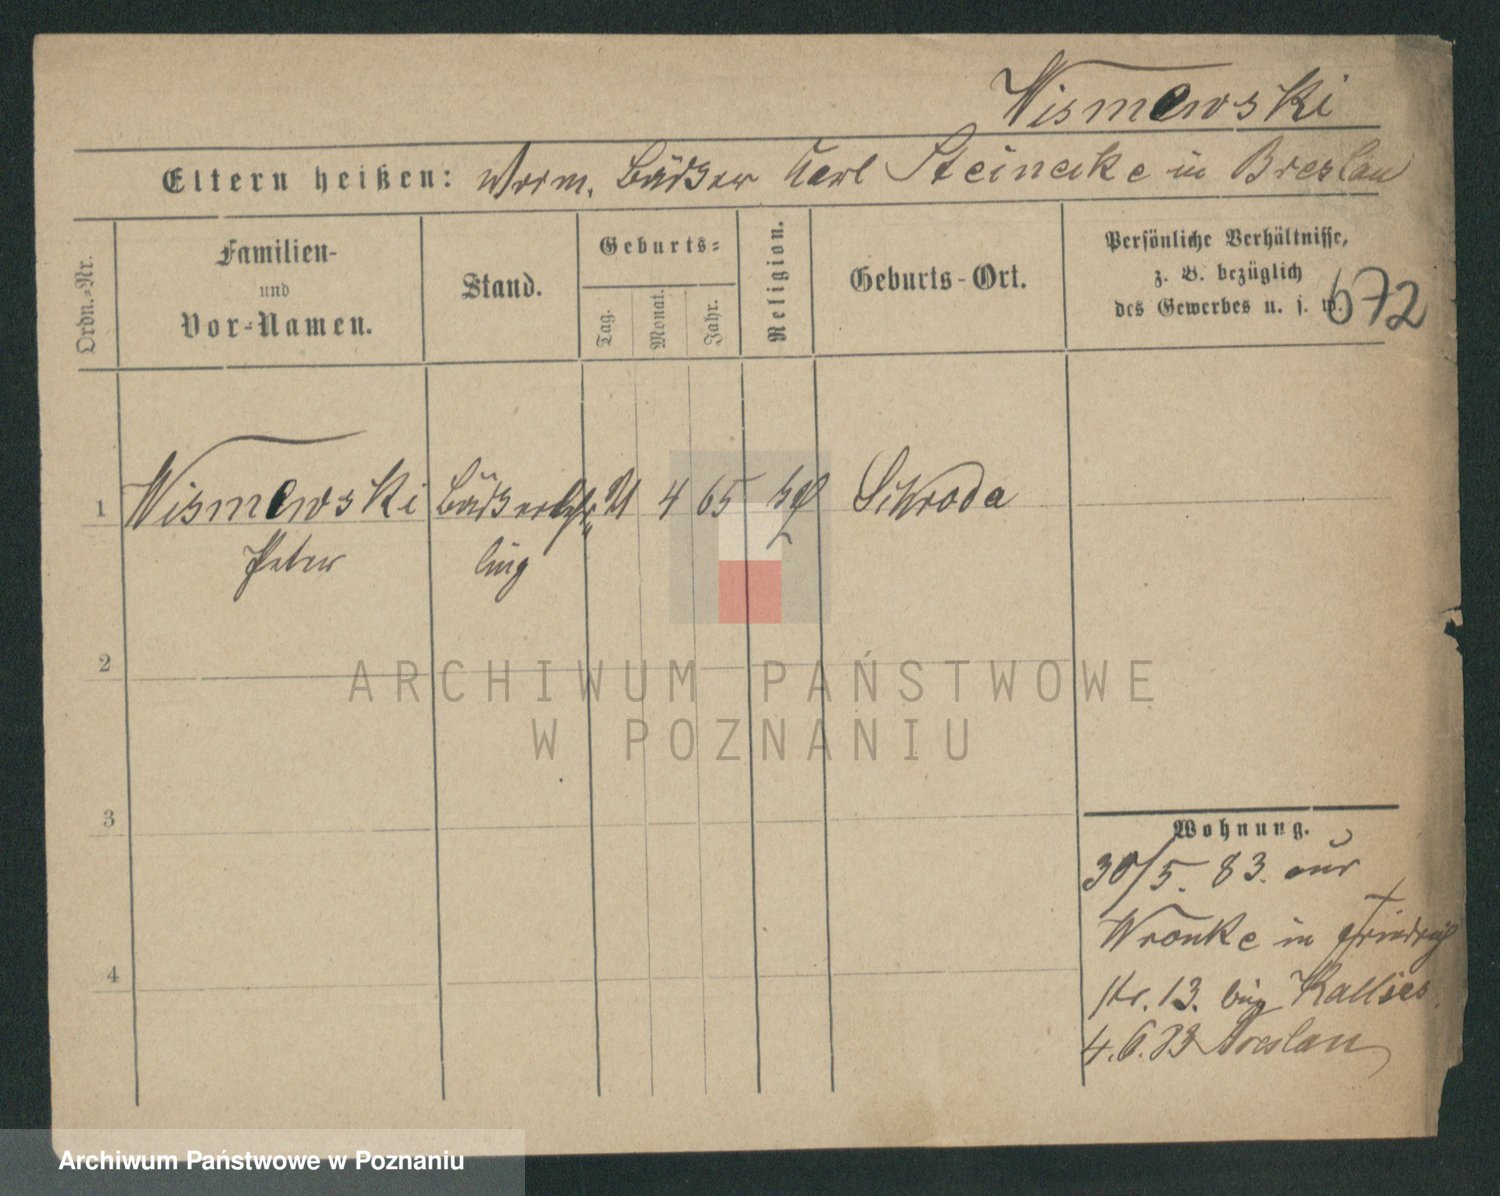 Wismewski
Eltern heißen: Bäcker Karl Steinecke in Breslau
Ordn.-Nr.
Familien-
und
Vor-Namen.
Stand.
Geburts-
Tag.
Monat.
Jahr.
Religion.
Geburts-Ort.
Persönliche Verhältnisse,
z. B. bezüglich
des Gewerbes u. s. w.
672
1 Wismewski Bäckerlehr- 4 65 Schroda
Peter ling
2
3
4
Wohnung.
30/5. 83. aus
Wronke in Friedrich
str. 13. bei
4.6.83 Breslau
ARCHIWUM PAŃSTWOWE
W POZNANIU
Archiwum Państwowe w Poznaniu